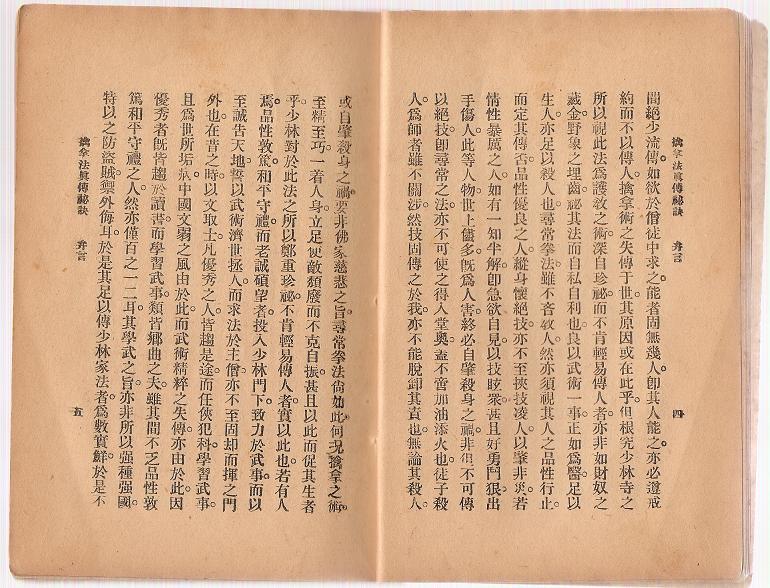 擒拿法眞傳祕訣　弁言
四
間絕少流傳。如欲於僧徒中求之。能者固無幾人。卽其人能之。亦必遵戒
約而不以傳人。擒拿術之失傳于世。其原因或在此乎。但根究少林寺之
所以視此法爲護敎之術。深自珍祕。而不肯輕易傳人者。亦非如財奴之
藏金。野象之埋齒。祕其法而自私自利也。良以武術一事。正如爲醫。足以
生人。亦足以殺人也。尋常拳法。雖不吝敎人。然亦須視其人之品性行止。
而定其傳否。品性優良之人。縱身懷絕技。亦不至挾技凌人。以肇非災。若
情性暴厲之人。如有一知半解。卽急欲自見。以技眩衆。甚且好勇鬥狠。出
手傷人。此等人物。世上儘多。旣爲人害。終必自肇殺身之禍。非但不可傳
以絕技。卽尋常之法。亦不可使之得入堂奧。蓋不啻加油添火也。徒子殺
人。爲師者雖不關涉。然技固傳之於我。亦不能脫卸其責也。無論其殺人。
或自肇殺身之禍。要非佛家慈悲之旨。尋常拳法尙如此。何況擒拿之術。
至精至巧。一着人身。立足使敵頽廢而不克自振。甚且以此而促其生者
乎。少林對於此法之所以鄭重珍祕。不肯輕易傳人者。實以此也。若有人
焉。品性敦篤。和平守禮。而老誠碩望者。投入少林門下。致力於武事。而以
至誠告天地。誓以武術濟世拯人。而求法於主僧。亦不至固却而揮之門
外也。在昔之時。以文取士。凡優秀之人。皆趨是途。而任俠犯科。學習武事。
且爲世所垢病。中國文弱之風由於此。而武術精粹之失傳。亦由於此。因
優秀者旣皆趨於讀書。而學習武事。類皆鄉曲之夫。雖其間不乏品性敦
篤和平守禮之人。然亦僅百之一二耳。其學武之旨。亦非所以强種强國
特以之防盜賊。禦外侮耳。於是其足以傳少林家法者。爲數實鮮。於是不
擒拿法眞傳祕訣　弁言
五